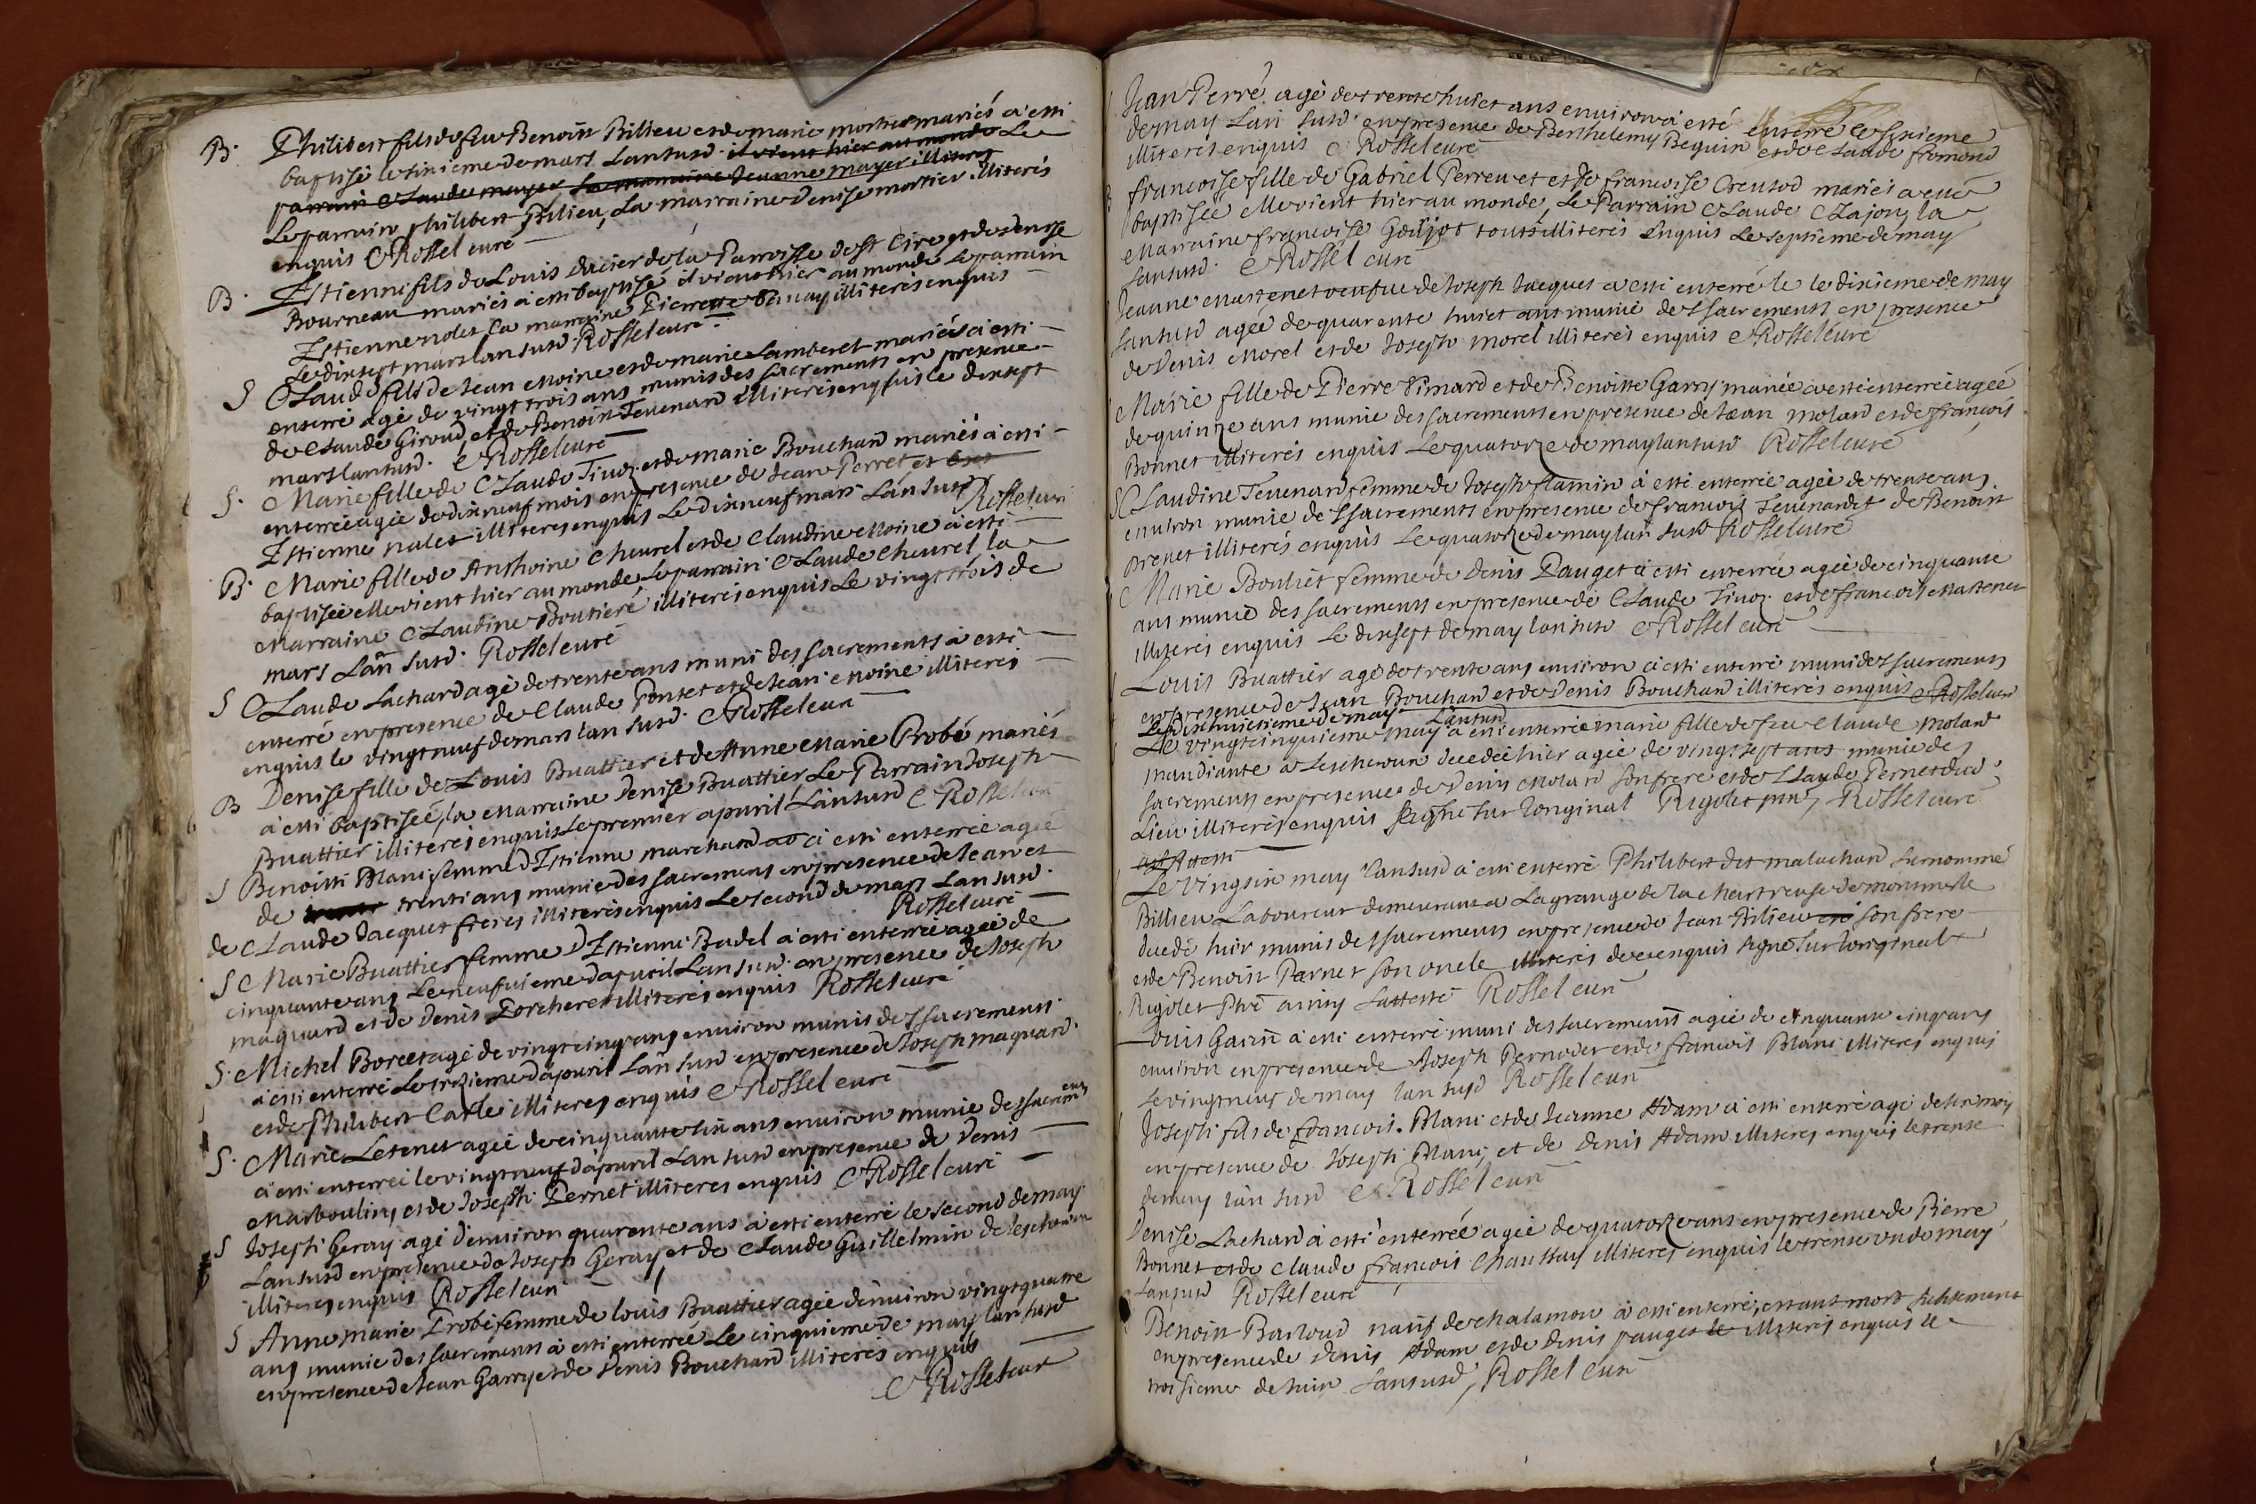 B. Philibert fils de feu Benoist Billieu et de marie mortier mariés a esti
baptisé le sixieme de mars Lan susd. il vient hier au monde Le
parrain Claude mayer La marraine Jeanne mayer illiteres
Le parrain philibert Bilieu, La marraine Denise mortier illiterés
enquis C Rossel curé
B. Estienne fils de Louis Dacier de la Parroisse de st Cire et de denise
Bourneau mariés à esti baptisé il vient hier au monde Le parrain
Estienne nolet La marraine Pierrette illiterés enquis
Le dixsept mars lan susd. Rossel curé
S Claude fils de Jean Moine et de marie Lamberet mariés à esti
enterré agé de vingt trois ans munis des sacrements en presence
de Claude Giroud et de Benoist Tevenard illiterés enquis le dixsept
mars lan susd. C Rossel curé
S. Marie fille de Claude Tivoz et de marie Bouchard mariés à esti
enterrée agée de dixneuf mois en presence de Jean Perret et
Estienne nalet illiteres enquis Le dixneuf mars Lan susd Rossel curé
B. Marie fille de Anthoine Cheurel et de Claudine Moine à esti
baptisée elle vient hier au monde Le parrain Claude Cheurel la
Marraine Claudine Boutieré illiterés enquis Le vingt trois de
mars Lan susd. Rossel curé
S Claude Lachard agé de trente ans muni des sacrements à esti
enterré en presence de Claude Pontet et de Jean Moine illiterés
enquis le vingt neuf de mars lan susd. C Rossel curé
B Denise fille de Louis Buattier et de Anne Marie Probé mariés
à esti baptisée, la Marraine Denise Buattier Le Parrain Joseph
Buattier illiterés enquis Le premier apuril Lan susd C Rossel curé
S Benoitte Blanc femme d'Estienne marchand a esti enterrée agée
de trente trente ans munie des sacremens en presence de Jean et
de Claude Jacquet freres illiterés enquis Le second de mars Lan susd.
Rossel curé
S Marie Buattier femme d'Estienne Badel à esti enterrée agée de
cinquante ans Le neufuieme d'apuril Lan susd. en presence de Joseph
maquard et de Denis Porcheret illiterés enquis Rossel curé
S. Michel Borcet agé de vingt cinq ans environ munis des sacrements
à esti enterré Le trezieme d'apuril Lan susd en presence de Joseph maquard.
et de Philibert Carle illiteres enquis C Rossel curé
S. Marie Letenet agée de cinquante six ans environ munie des sacrements
à esti enterrée le vingt neuf d'apuril Lan susd en presence de Denis
Marboulin, et de Joseph Pernet illiteres enquis C Rossel curé
S Joseph Geray agé denviron quarente ans à esti enterré le second de may
Lan susd en presence de Joseph Geray et de Claude Guillelmin de
illiteres enquis Rossel curé
S Anne marie Probé femme de louis Buattier agée denviron vingt quatre
ans munie des sacrements à esti enterrée Le cinquieme de may lan susd
en presence de Jean Garry et de Denis Bouchard illiterés enquis
C Rossel curé
Jean Perré agé de trente huict ans environ à esté enterré le sixieme
de may Lan susd en presence de Berthelemy Bequin et de Claude fromond
illiterés enquis C Rossel curé
francoise fille de Gabriel Perreu et et de francoise Creusod mariés a esté
baptisée elle vient hier au monde, Le Parrain Claude Clajon, la
Marraine francoise Goujot touts illiterés Enquis Le septieme de may
Lan susd. C Rossel curé
Jeanne veufue de Joseph Jacques a esti enterré le le dixieme de may
Lan susd agée de quarente huict ans munie des sacrements en presence
de Denis Morel et de Joseph morel illiterés enquis C Rossel curé
Marie fille de Pierre Simard et de Benoitte Garry mariée a esti enterrée agée
de quinze ans munie des sacrements en presence de Jean molard et de francois
Bonnet illiterés enquis Le quatorze de may lan susd Rossel curé
S Claudine Tevenard femme de Joseph flamin à esti enterrée agée de trente ans
environ munie des sacrements en presence de francois Tevenardet de Benoist
illiterés enquis Le quatorze de may lan susd Rossel curé
Marie Bouliet femme de Denis Pauget à esti enterrée agée de cinquante
ans munie des sacrements en presence de Claude Tivoz et de francois Mastenet
illiterés enquis Le dixsept de may lan susd C Rossel curé
Louis Buattier agé de trente ans environ à esti enterré muni des sacrements
en presence de Jean Bouchard et de Denis Bouchard illiterés enquis C Rossel curé
Le dixhuictieme de may Lan susd
Le vingtcinquieme may a esti enterrée marie fille de feu Claude molard
mandiante a decedée hier agée de vingt sept ans munie des
sacrements en presence de Denis Molard son frere et de Claude Pernet dud
Lieu illiterés enquis signé sur l'original Rigolet Rossel curé
Le vingsix may lan susd à esti enterré Philibert dit malachard surnommé
Billieu Laboureur demeurant a Lagrange de la chartreuse de
decedé hier munis des sacrements en presence de Jean Bilieu son frere
et de Benoist Parnet son oncle illiterés de ce enquis signé sur loriginal
Rigolet Ptre ainsy Latteste Rossel curé
Louis Garin à esti enterré muni des sacrements agée de cinquante cinq ans
environ en presence de Joseph Pernodet et de francois Blanc illiteres enquis
Le vingtneuf de may lan susd Rossel curé
Joseph fils de francois Blanc et de Jeanne Adam à esti enterré agé de six moys
en presence de Joseph Blanc, et de Denis Adam illiteres enquis le trente
de may lan susd C Rossel curé
Denise Lachard à esti enterrée agée de quatorze ans en presence de Pierre
Bonnet et de Claude francois Chaussay illiteres enquis le trente un de may
Lan susd Rossel curé
Benoist Barloud natif de chalamon à esti enterré, estant mort subitement
en presence de Denis Adam et de Denis pauget le illiterés enquis le
troisieme de Juin Lan susd, Rossel curé